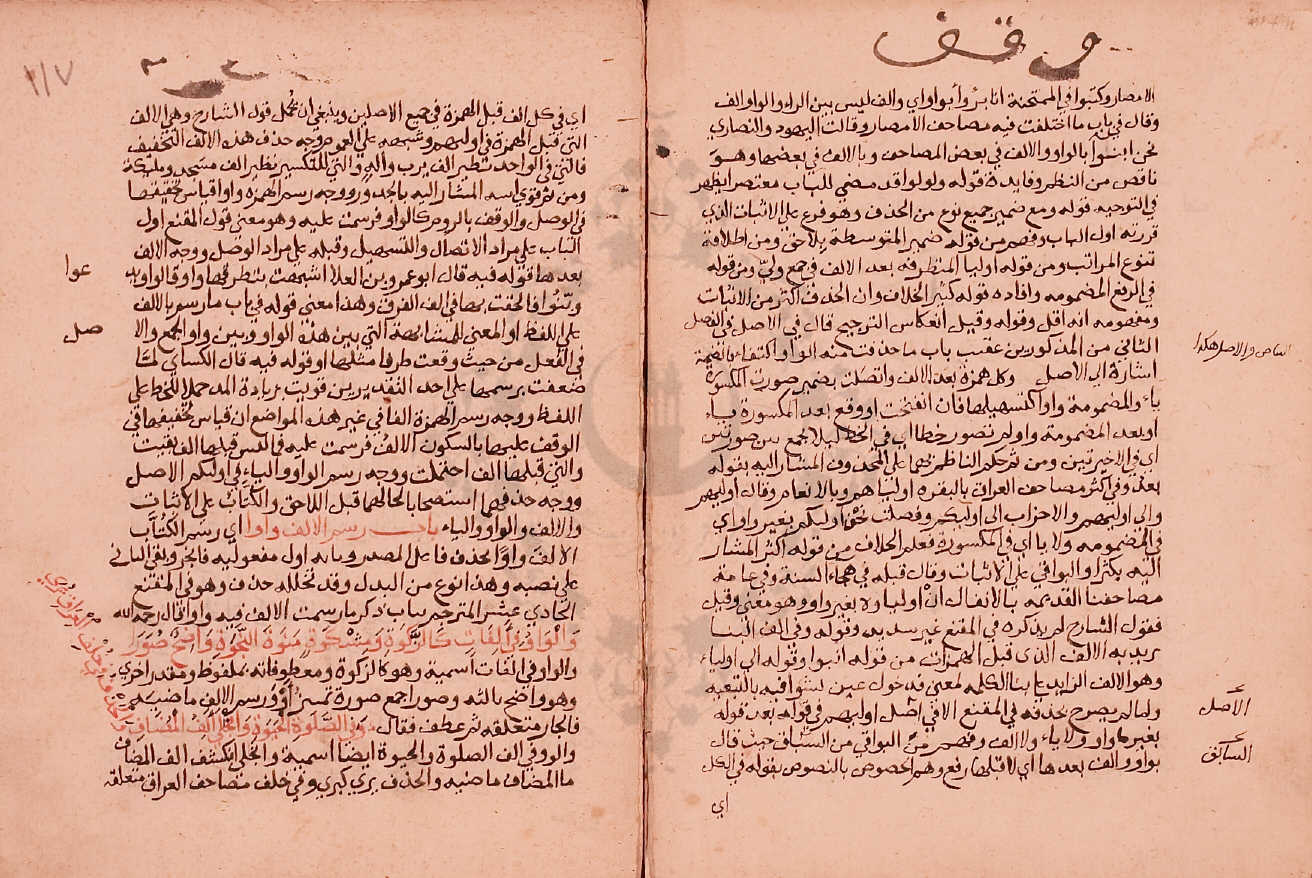 وقف
الامصار وكتبوا في الممتحنة انا برؤا بواو واي والف ليس بين الراء والواو الف
وقال في باب ما اختلفت فيه مصاحف الامصار وقالت اليهود والنصاري
نحن ابنؤا بالواو والالف في بعض المصاحف وبالالف في بعضها وهو
ناقص من النظير وفايدة قوله ولولو اقد مضي للباب معتصرا يظهر
في التوجيه قوله ومع ضمير جميع نوع من الحذف وهو فرع علي الاثبات الذي
قررته اول الباب وفهم من قوله ضمير المتوسطة بلاحق ومن اطلاقه
تنوع المراتب ومن قوله اوليا المتطرفه بعد الالف في جمع ولي ومن قوله
في الرفع المضمومه وافاده قوله كثير الخلاف وان الحذف اكثر من الاثبات
ومفهومه انه اقل وقوله وقيل انعكاس الترجيح قال في الاصل في الفصل
الثاني من المذكورين عقيب باب ما حذفت منه الواو اكتفاء بالضمة
اشارة الي الاصل وكل همزة بعد الالف واتصلت بضمير صورت المكسورة
ياء والمضمومة واوا كتسهيلها فان انفتحت او وقع بعد المكسورة ياء
او بعد المضمومة واو لم تصور خطا اي في الخط ليلا يجمع بين صورتين
اي في الاخيرتين ومن ثم حكم الناظم على المحذوف المشار اليه بقوله
بعد وفي اكثر مصاحف العراق بالبقره اولياهم وبالانعام وقال اوليهم
والي اوليهم والاحزاب الي اوليكم وفصلت نحن اوليكم بغير واو اي
في المضمومه ولا يا اي في المكسورة فعلم الخلاف من قوله اكثر المشار
اليه بكثير والبواقي علي الاثبات وقال قبله في هجاء السنة وفي عامة
مصاحفنا القديمه بالانفال ان اوليا وه بغير واو وهو معني وقيل
فقول الشارح لم يذكره في المقنع غير سديد وقوله وفي الف البنا
يريد به الالف الذي قبل الهمزات من قوله ابنوا وقوله الي اولياء
وهو الالف الزايد في بنا الكلمه لمعني فدخول عين بنؤا فيه بالتبعيه
ولما لم يصرح بحذفه في المقنع الا في اصل اوليهم في قوله بعد قوله
بغير واو ولا ياء ولا الف وفهم من البواقي من السباق حيث قال
بواو والف بعدها اي لا قبلها رفع وهم الخصوص بالنصوص بقوله في الكل
اي
والاصل هكذا
الاصل
السابق
١١٧
اي في كل الف قبل الهمزة في جميع الاصلين وينبغي ان يحمل قول الشارح وهي الالف
التي قبل الهمزة في اوليهم وشبهه علي العموم ووجه حذف هذه الالف التخفيف
فالتي في الواحد نظير الف يرب والتي للتكسير نظير الف مسجد وملئكة
ومن ثم قوي اسه المشار اليه بأجدر ووجه رسم الهمزه واوا قياس تخفيفها
في الوصل والوقف بالروم كالواو فرسمت عليه وهو معني قول المقنع اول
الباب علي مراد الاتصال والتسهيل وقبله علي مراد الوصل ووجه الالف
بعدها قوله فيه قال ابو عمرو بن العلا اشبهت بتطرفها واو قالوا ويد
وتتنوا فالحقت بها في الف الفرق وهذا معني قوله في باب ما رسم بالالف
علي اللفظ او المعني للمشابهة التي بين هذه الواو وبين واو الجمع والا
في الفعل من حيث وقعت طرفا مثلها وقوله فيه قال الكساي لما
ضعفت برسمها علي احد التقديرين قويت بزيادة المد حملا للخط علي
اللفظ ووجه رسم الهمزة الفا في غير هذه المواضع ان قياس تخفيفها في
الوقف عليها بالسكون الالف فرسمت عليه فما ليس قبلها الف بقيت
والتي قبلها الف احتملت ووجه رسم الواو والياء في اوليكم الاصل
ووجه حذفهما استصحابا لحالهما قبل اللاحق والكتاب علي الاثبات
والالف والواو والياء باب رسم الالف واوا اي رسم الكتاب
الالف واوا لحذف فاعل المصدر وبابه اول مفعوليه فالجر وبقي الثاني
علي نصبه وهذا نوع من البدل وقد تخلله حذف وهو في المقنع
الحادي عشر المترجم بباب ذكر ما رسمت الالف فيه واوا قال رحمه الله
والواو في الفات كالزكوة ومشكوة منوة النجوة واضح صورا
والواو في الفات اسمية وهو كالزكوة ومعطوفاته بملفوظ ومقدر اخري
وهو واضح بالثه وصورا جمع صورة تمييز او ورسم الالف ماضيه
فالجار متعلقه ثم عطف فقال وفي الصلوة الحيوة وانجلي الف المضاف
والواو في الف الصلوة والحيوة ايضا اسمية وانجلي انكشف الف المضاف
ما المضاف ماضيه والحذف يري كبري وفي خلف مصاحف العراق متعلقه
عوا
صل